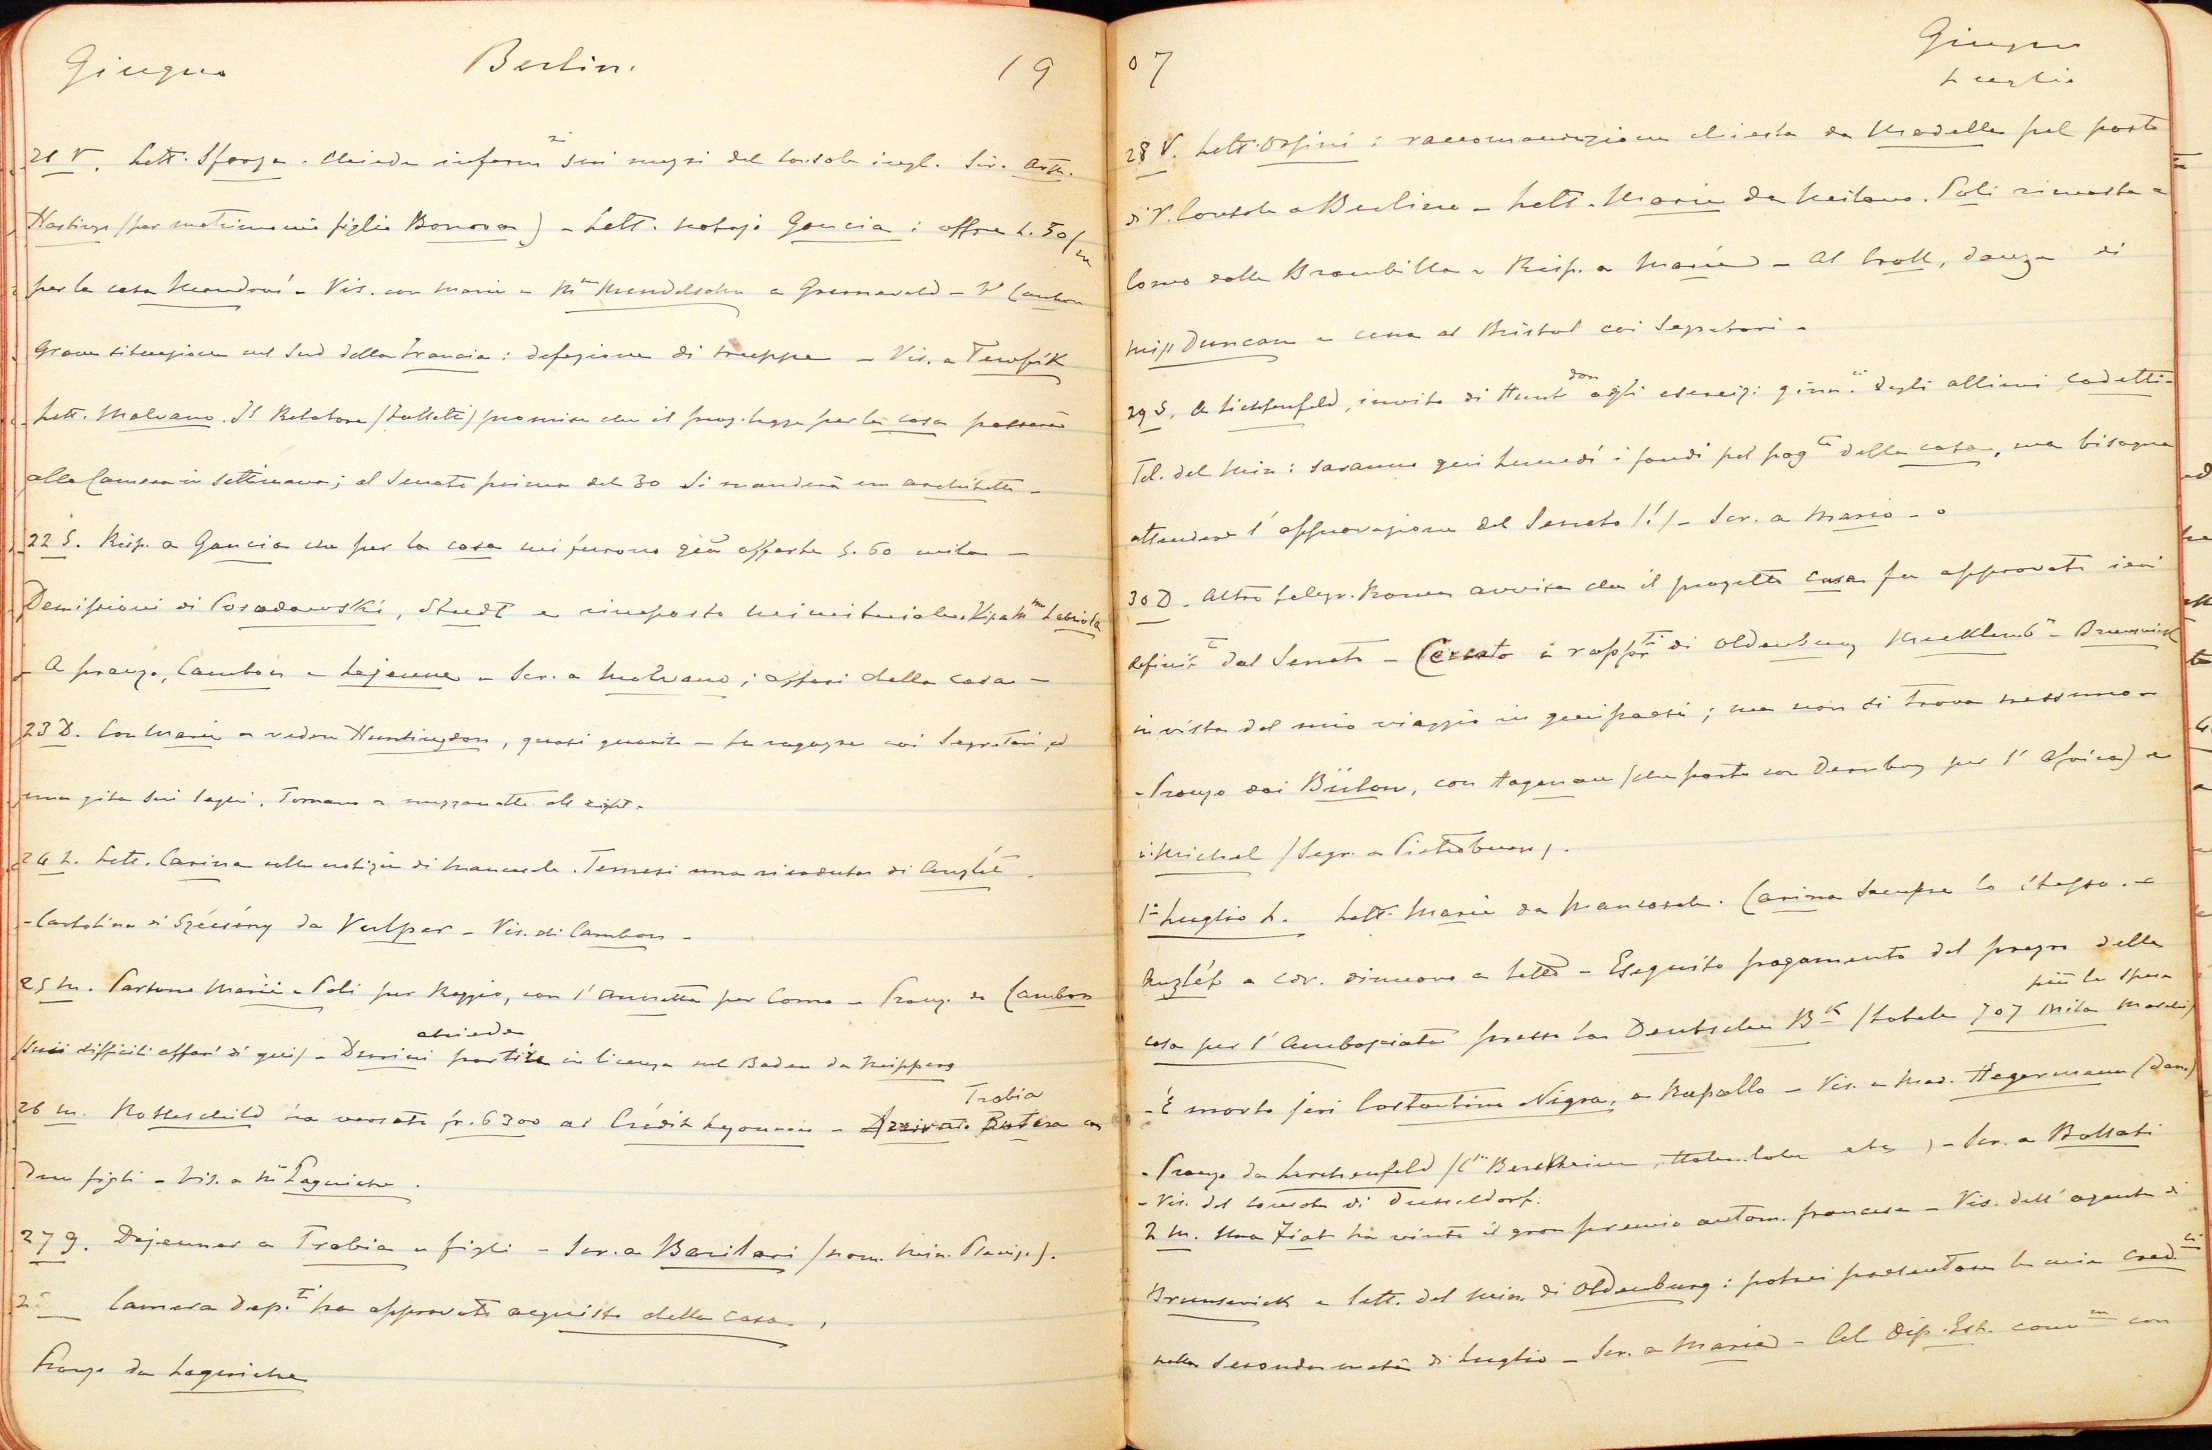 Giugno Berlin. 19
21 V. Lett. Sforza. Chiede inform.zi sui mezzi del console ingl. Sir. Arth.
Hastings (per matrimonio figlia Bonora) - Lett. notajo Gaucia: offre L. 50/m
per la casa Mondovì - Vis. con Maria a Mme Mendelsohn a Grunewald - Vo Cambon
Grave situazione nel Sud della Francia: defezione di truppe - Vis. a Tewfik
Lett. Malvano. Il Relatore promise che il prog. legge per la casa passerà
alla Camera in settimana; al Senato prima del 30 Si manderà un architetto -
22 S. Risp. a Gaucia che per la casa mi furono già offerte L. 60 mila -
Demissioni di Posadowski, Studt e rimpasto ministeriale. Vis. a Mme Labriola
- A pranzo, Cambon e Lejeune - Scr. a Malvano; affari della casa -
23 D. Con Maria a veder Huntingdon, quasi guarito - Le ragazze coi Segretari, ad
una gita sui laghi. Tornano a mezzanotte
24 L. Lett. Carina colle notizie di Mancasale. Temesi una ricaduta di Anglét -
- Cartolina di Szécsény da Vulper - Vis. di Cambon -
25 M. Partono Maria e Poli per Reggio, con l'Annetta per Como - Pranz. da Cambon
difficili affari di qui) - Durini chiede partire in licenza nel Baden da Neipperg
26 M. Rothschild ha versato fr. 6300 al Crédit Lyonnais - Arrivato Butera Trabia con
due figli - Vis. a Mme Laguiche.
27 G. Dejeuner a Trabia e figli - Scr. a Barilari (nom. Min.
Camera Dep.ti ha approvato acquisto della casa,
Pranzo da Laguiche
07 Giugno
Luglio
28 V. Lett. Orsini: raccomandazione chiesta da Modella pel posto
di V. Console a Berlino - Lett. Maria da Milano. Poli rimasta a
Como dalla Brambilla - Risp. a Maria - Al Croll, danza di
miss Duncan e cena al Bristol coi Segretari -
29 S. A Lichtenfeld, invito di Huntdon agli esercizi ginn.ci degli allievi cadetti -
Tel. del Min: saranno qui Lunedí i fondi pel pagto della casa, ma bisogna
attendere l'approvazione del Senato (!) - Scr. a Maria -
30 D. Altro telegr. Roma avvisa che il progetto casa fu approvato ieri
definit.te dal Senato - Cercato i rapprti di Oldenburg Mecklenbg - Brunswick
in vista del mio viaggio in quei paesi; ma non si trova nessuno -
- Pranzo dai Bülow, con Hagenau (che parte con Dernburg per l'Africa) e
i Michel (Segr. a Pietroburgo).
1º Luglio L. Lett. Maria da Mancasale. Carina sempre lo stesso. -
Anglét a dinuovo a letto - Eseguito pagamento del prezzo della
casa per l'Ambasciata presso la Deutsche Bk (totale 707 mila marchi) più le spese
- È morto jeri Costantino Nigra, a Rapallo - Vis. a Mad. Hegermann (Dan.)
- Pranzo da Lerchenfeld (Cte Berckheim, Hohenlohe etc) - Scr. a Bollati
- Vis. del console di Dusseldorf.
2 M. Una Fiat ha vinto il gran premio autom. francese - Vis. dell'agente di
Brunswick e lett. del Min. di Oldenburg: potrei presentare le mie Cred.li
nella seconda metà di Luglio - Scr. a Maria - Al Dip. Est. con